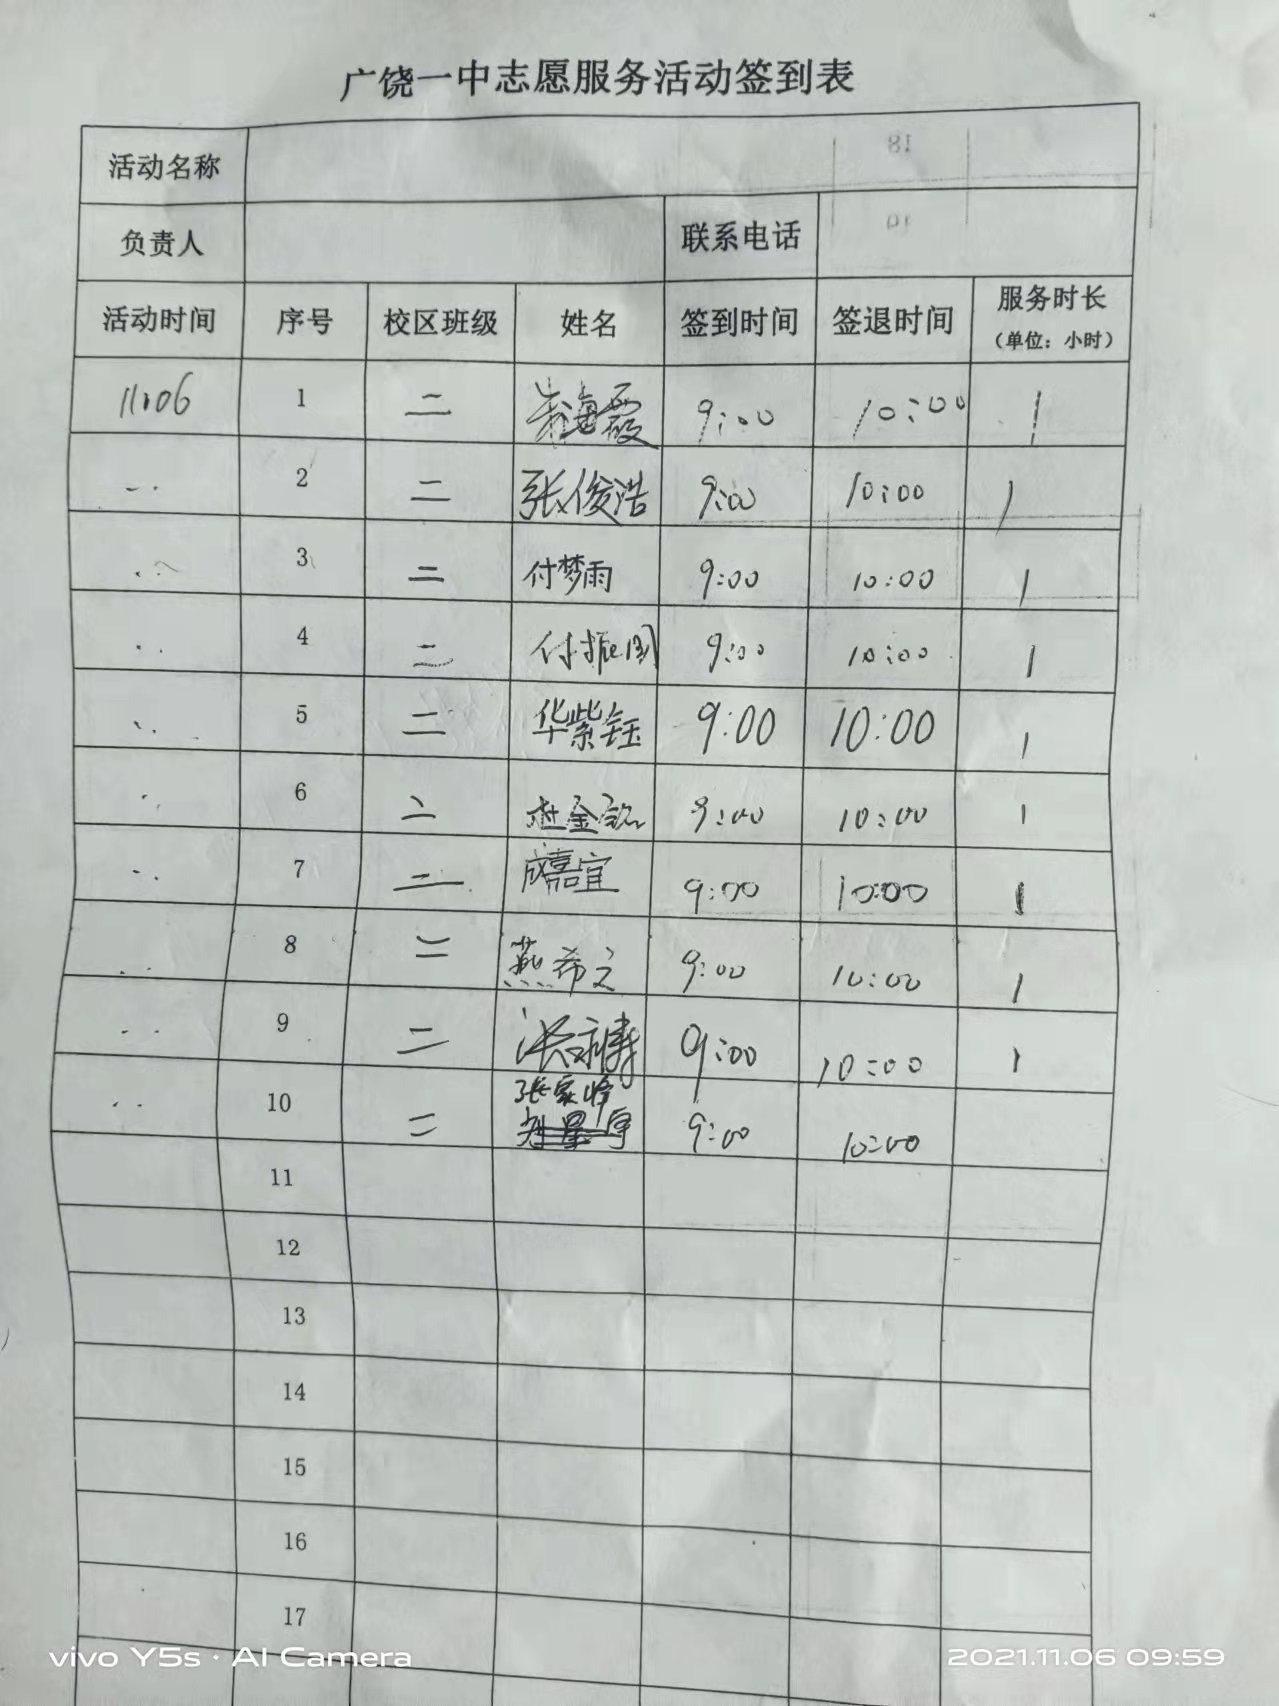 广饶一中志愿服务活动签到表
活动名称
负责人 联系电话
活动时间 序号 校区班级 姓名 签到时间 签退时间 服务时长
（单位：小时）
11.06 1 二 海霞 9:00 10:00 1
2 二 张俊浩 9:00 10:00 1
3 二 付梦雨 9:00 10:00 1
4 二 付振国 9:00 10:00 1
5 二 华紫钰 9:00 10:00 1
6 二 9:00 10:00 1
7 二 成嘉宜 9:00 10:00 1
8 二 燕希文 9:00 10:00 1
9 二 9:00 10:00 1
张家峰
10 二 9:00 10:00
11
12
13
14
15
16
17
vivo Y5s · AI Camera 2021.11.06 09:59